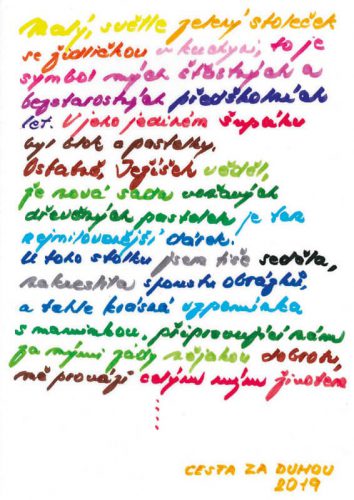 Malý, světle zelený stoleček
se židličkou v kuchyni, to je
symbol mých šťastných a
bezstarostných předškolních
let. V jeho jediném šupáku
byl blok a pastelky.
Ostatně, Ježíšek věděl,
že nová sada voňavých
dřevěných pastelek je ten
nejmilovanější dárek.
U toho stolku jsem tiše seděla,
nakreslila spoustu obrázků,
a tahle krásná vzpomínka
s maminkou, připravující nám
za mými zády nějakou dobrotu,
mě provází celým mým životem
......
CESTA ZA DUHOU
2019